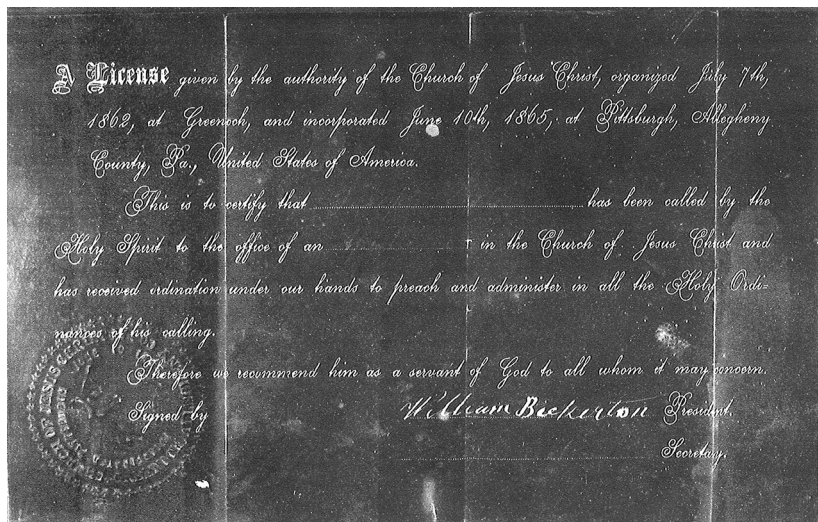 A License given by the authority of the Church of Jesus Christ, organized July 7th,
1862, at Greenoch, and incorporated June 10th, 1865, at Pittsburgh, Allegheny
County, Pa., United States of America.
This is to certify that has been called by the
Holy Spirit to the office of an in the Church of Jesus Christ and
has received ordination under our hands to preach and administer in all the Holy Ordi-
nances of his calling.
Therefore we recommend him as a servant of God to all whom it may concern.
Signed by William Bickerton President.
Secretary.
CHURCH OF JESUS